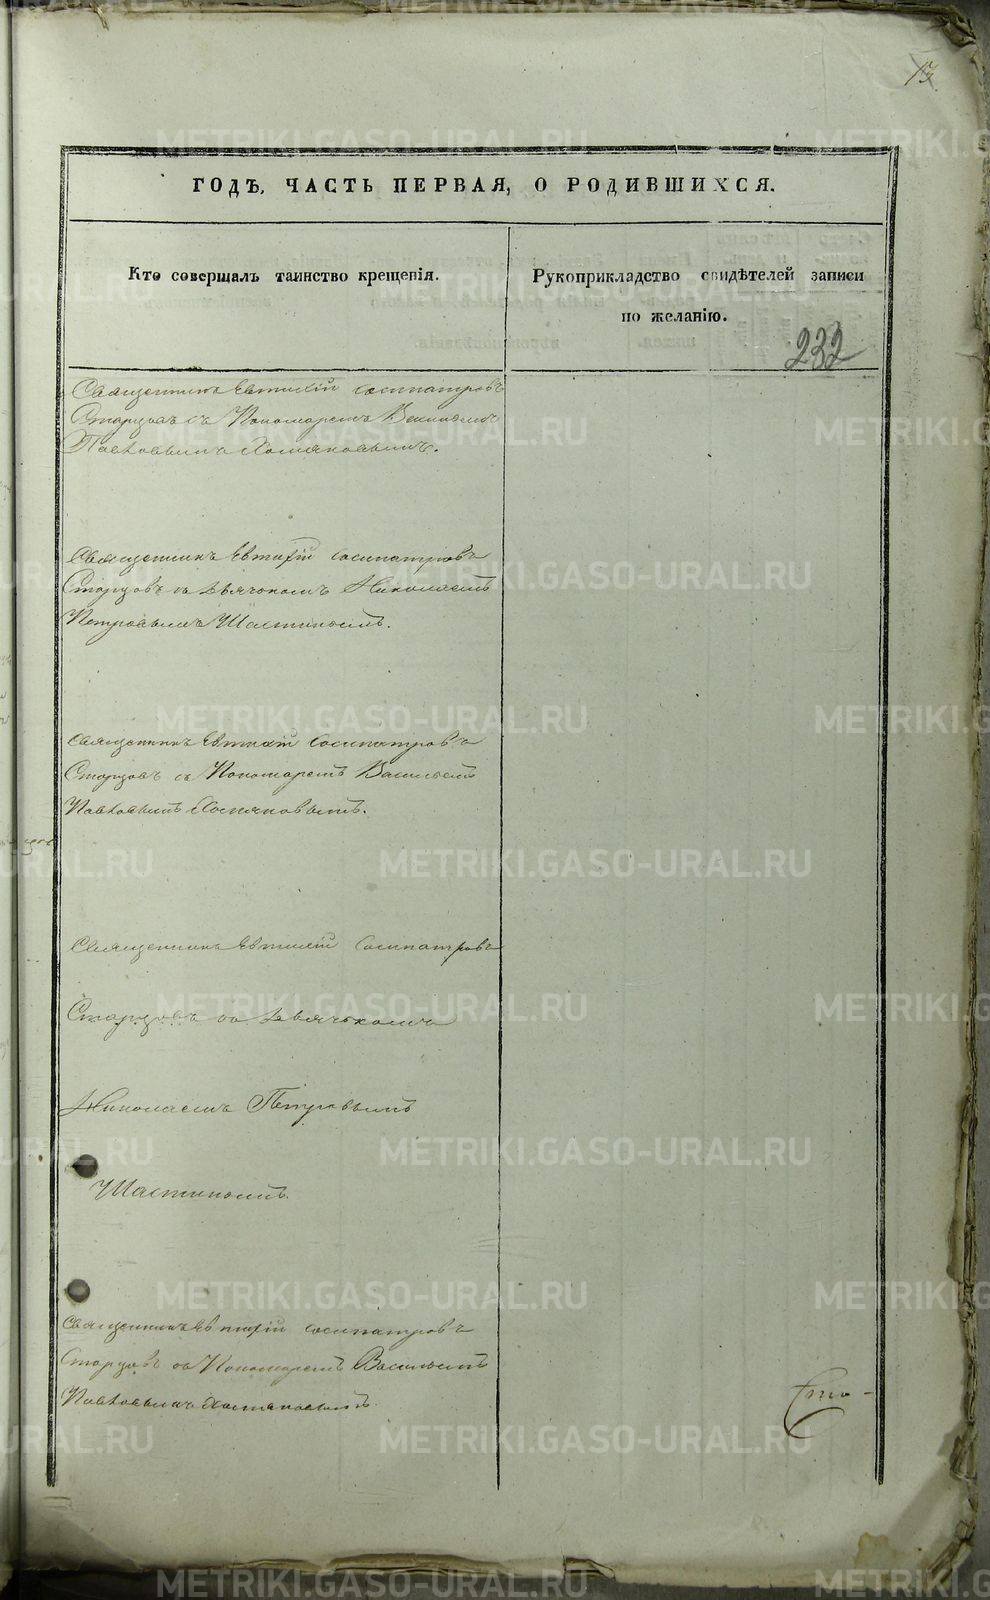 13.
ГОДѢ, ЧАСТЬ ПЕРВАЯ, О РОДИВШИХСЯ.
Кто совершалъ таинство крещенія.
Рукоприкладство свидѣтелей записи
по желанію.
232
Священникъ Евтихій Сосипатровъ
Старцовъ съ Пономаремъ Василіемъ
Павловымъ Хомяковымъ.
Священникъ Евтихій Сосипатровъ
Старцовъ съ Дьячкомъ Николаемъ
Петровымъ Шастинымъ.
Священникъ Евтихій Сосипатровъ
Старцовъ съ Пономаремъ Васильемъ
Павловымъ Хомяковымъ.
Священникъ Евтихій Сосипатровъ
Старцовъ со Дьячкомъ
Николаемъ Петровымъ
Шастинымъ.
Священникъ Евтихій Сосипатровъ
Старцовъ со Пономаремъ Васильемъ
Павловымъ Хомяковымъ.
METRIKI.GASO-URAL.RU